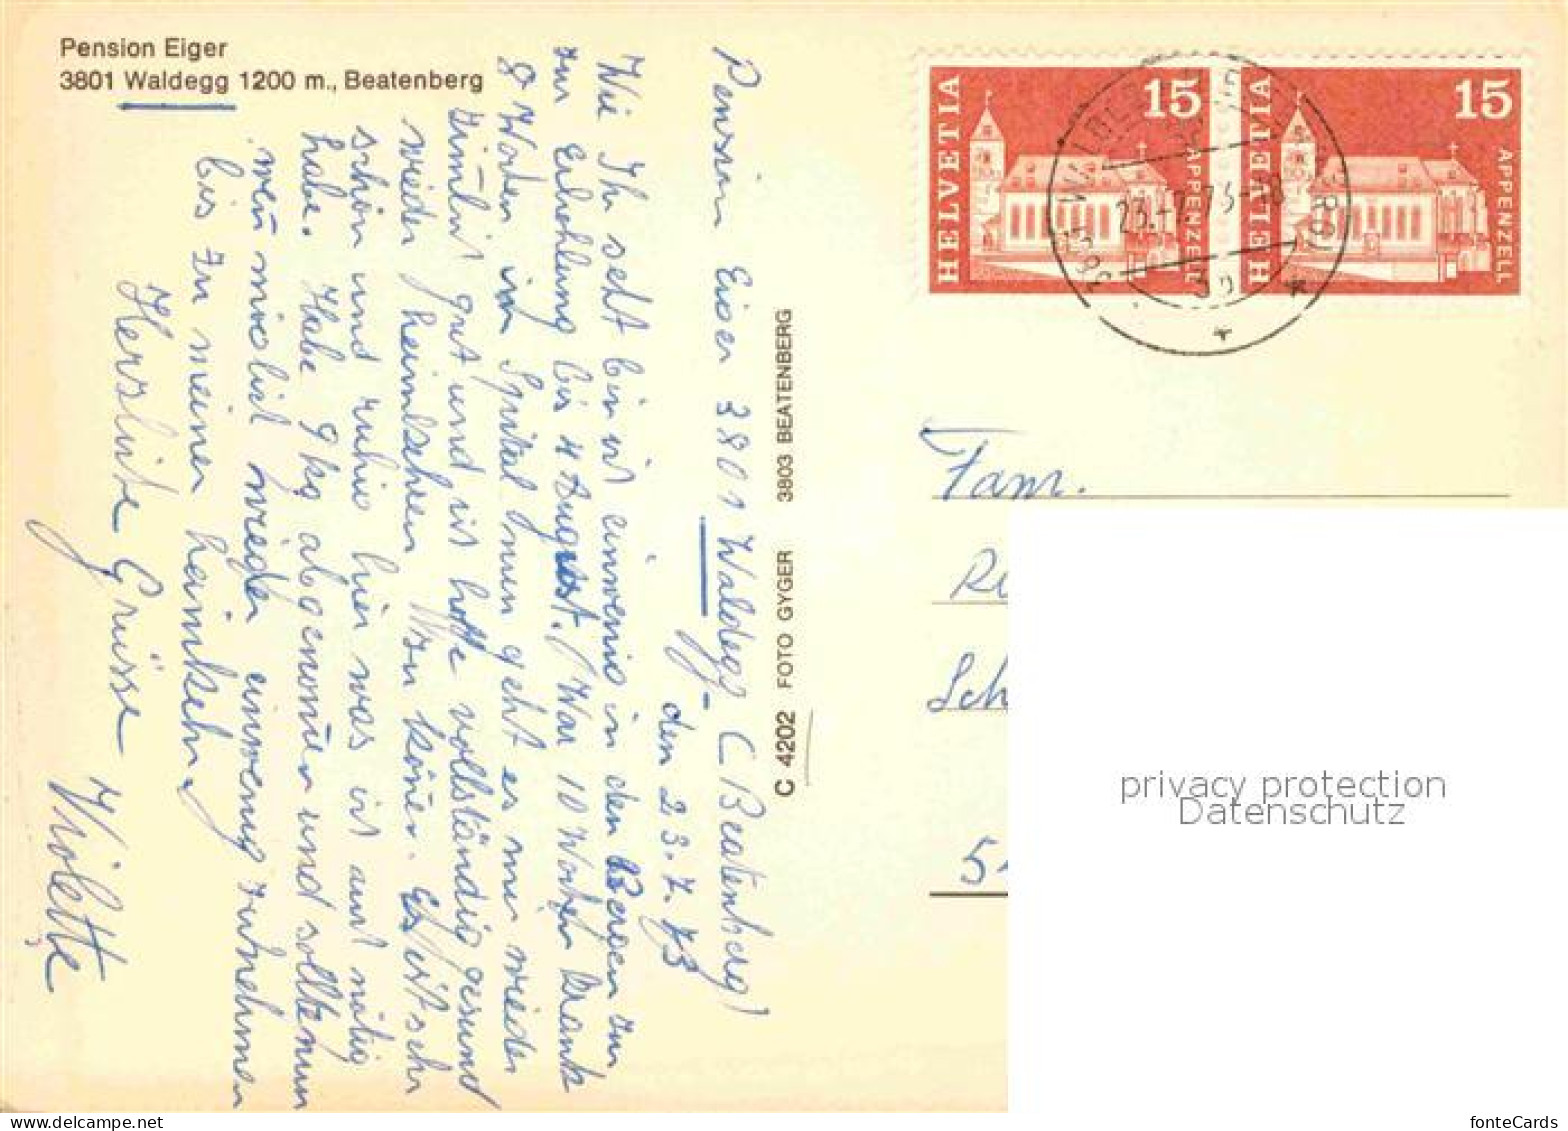 Pension Eiger
3801 Waldegg 1200 m., Beatenberg
Pension Eiger 3801 Waldegg (Beatenberg)
den 23.7.73
Wie Ihr seht bin ich einwenig in den Bergen zur
zur Erhohlung bis 4 August. War 10 Wochen krank
8 Wochen im Spital nun geht es mir wieder
zimlich gut und ich hoffe vollständig gesund
wieder heimkehren zu könen. Es ist sehr
schön und ruhig hier was ich auch nötig
habe. Habe 9 kg abgenomen und sollte nun
wen möglich wieder einwenig zunehmen
bis zu meiner heimkehr.
Herzliche Grüsse
Violette
C 4202 FOTO GYGER 3803 BEATENBERG
HELVETIA 15 APPENZELL
HELVETIA 15 APPENZELL
Fam.
Sch
5
privacy protection
Datenschutz
fonteCards